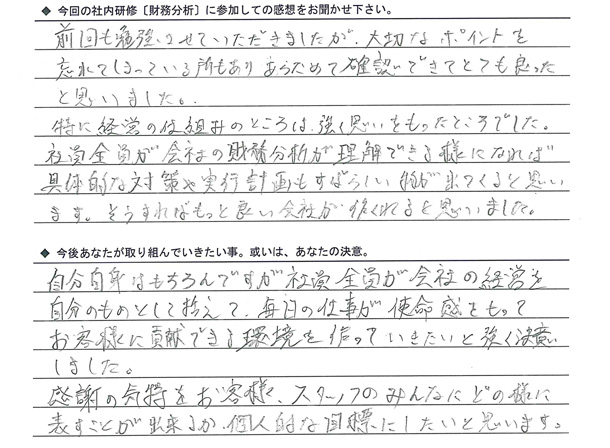 ◆ 今回の社内研修〔財務分析〕に参加しての感想をお聞かせ下さい。
前回も勉強させていただきましたが、大切なポイントを
忘れてしまっている所もありあらためて確認できてとても良った
と思いました。
特に経営の仕組みのところは、強く思いをもったところでした。
社員全員が会社の財務分析が理解できる様になれば
具体的な対策や実行計画もすばらしい物が出てくると思い
ます。そうすればもっと良い会社が作くれると思いました。
◆ 今後あなたが取り組んでいきたい事。或いは、あなたの決意。
自分自身はもちろんですが社員全員が会社の経営を
自分のものとして捨えて、毎日の仕事が使命感をもって
お客様に貢献できる環境を作っていきたいと強く決意
しました。
感謝の気持をお客様、スタッフのみんなにどの様に
表すことが出来るか、個人的な目標にしたいと思います。